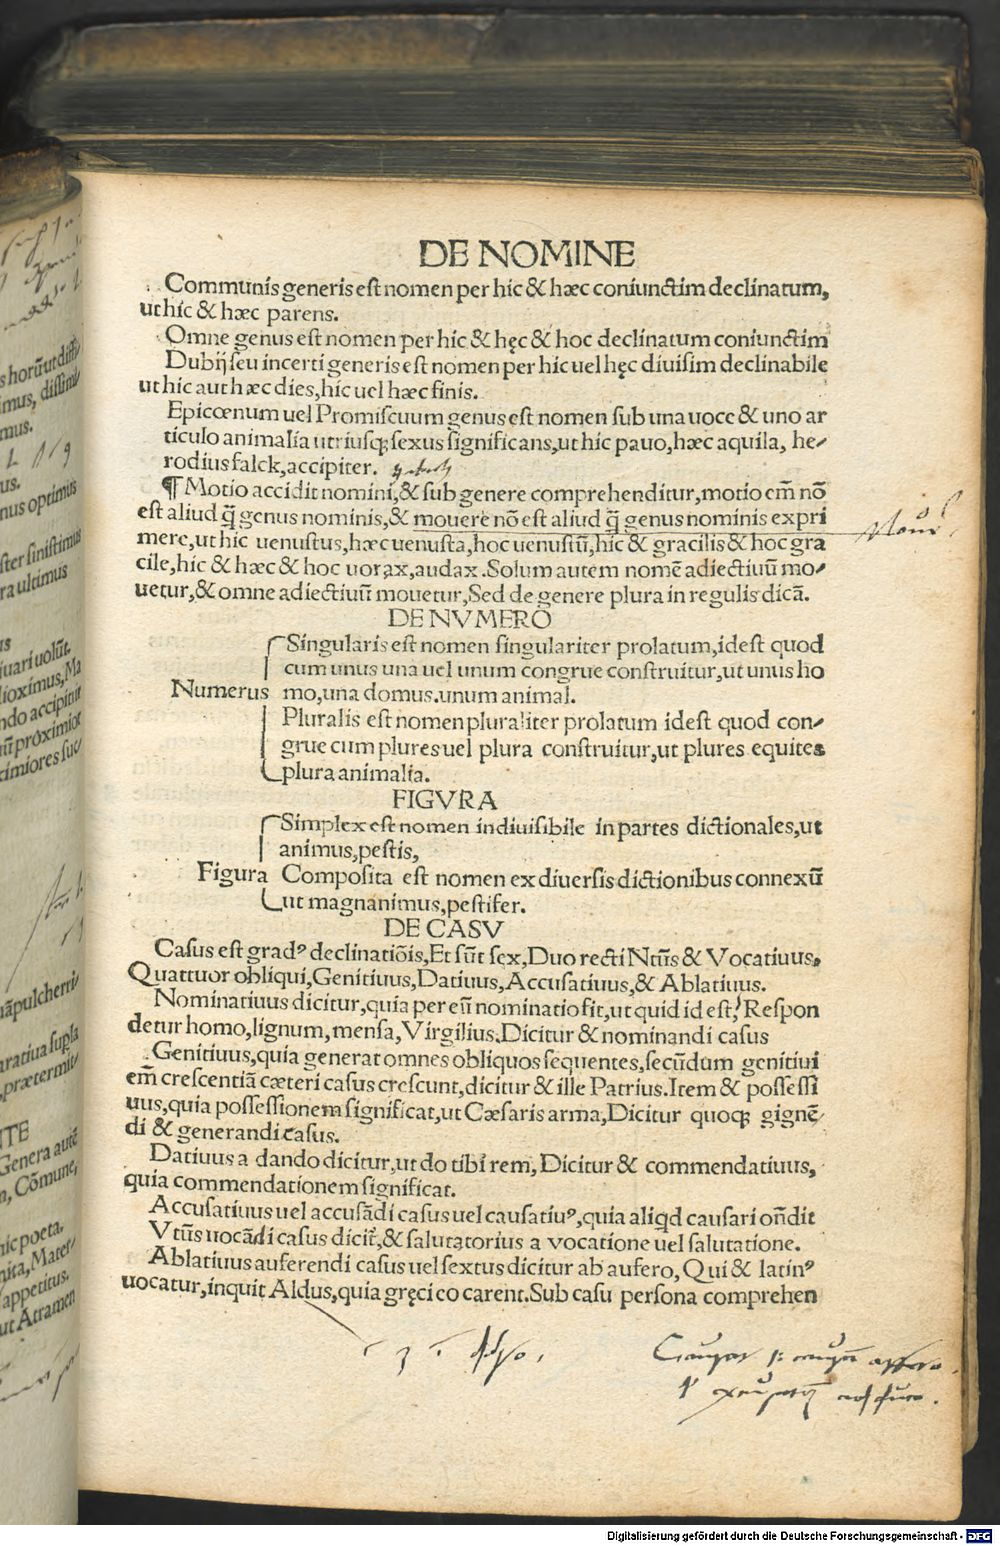 DE NOMINE
Communis generis est nomen per hic & hæc coniunctim declinatum,
ut hic & hæc parens.
Omne genus est nomen per hic & hęc & hoc declinatum coniunctim
Dubij seu incerti generis est nomen per hic uel hęc diuisim declinabile
ut hic aut hæc dies, hic uel hæc finis.
Epicœnum uel Promiscuum genus est nomen sub una uoce & uno ar
ticulo animalia utriusq; sexus significans, ut hic pauo, hæc aquila, he-
rodius falck, accipiter.
¶ Motio accidit nomini, & sub genere comprehenditur, motio em̄ nō
est aliud q̄ genus nominis, & mouere nō est aliud q̄ genus nominis expri
mere, ut hic uenustus, hæc uenusta, hoc uenustū, hic & gracilis & hoc gra
cile, hic & hæc & hoc uorax, audax. Solum autem nomē adiectiuū mo-
uetur, & omne adiectiuū mouetur, Sed de genere plura in regulis dicā.
DE NVMERO
Singularis est nomen singulariter prolatum, idest quod
cum unus una uel unum congrue construitur, ut unus ho
Numerus mo, una domus. unum animal.
Pluralis est nomen pluraliter prolatum idest quod con-
grue cum plures uel plura construitur, ut plures equites
plura animalia.
FIGVRA
Simplex est nomen indiuisibile in partes dictionales, ut
animus, pestis,
Figura Composita est nomen ex diuersis dictionibus connexū
ut magnanimus, pestifer.
DE CASV
Casus est gradꝰ declinatiōis, Et sūt sex, Duo recti Ntūs & Vocatiuus.
Quattuor obliqui, Genitiuus, Datiuus, Accusatiuus, & Ablatiuus.
Nominatiuus dicitur, quia per eū nominatio fit, ut quid id est? Respon
detur homo, lignum, mensa, Virgilius. Dicitur & nominandi casus
Genitiuus, quia generat omnes obliquos sequentes, secūdum genitiui
em̄ crescentiā cæteri casus crescunt, dicitur & ille Patrius. Item & possessi
uus, quia possessionem significat, ut Cæsaris arma, Dicitur quoq; gignē-
di & generandi casus.
Datiuus a dando dicitur, ut do tibi rem, Dicitur & commendatiuus,
quia commendationem significat.
Accusatiuus uel accusādi casus uel causatiuꝰ, quia aliqd causari ondit
Vtūs uocādi casus dicit̄, & salutatorius a vocatione uel salutatione.
Ablatiuus auferendi casus uel sextus dicitur ab aufero, Qui & latinꝰ
uocatur, inquit Aldus, quia gręci eo carent. Sub casu persona comprehen
Digitalisierung gefördert durch die Deutsche Forschungsgemeinschaft - DFG